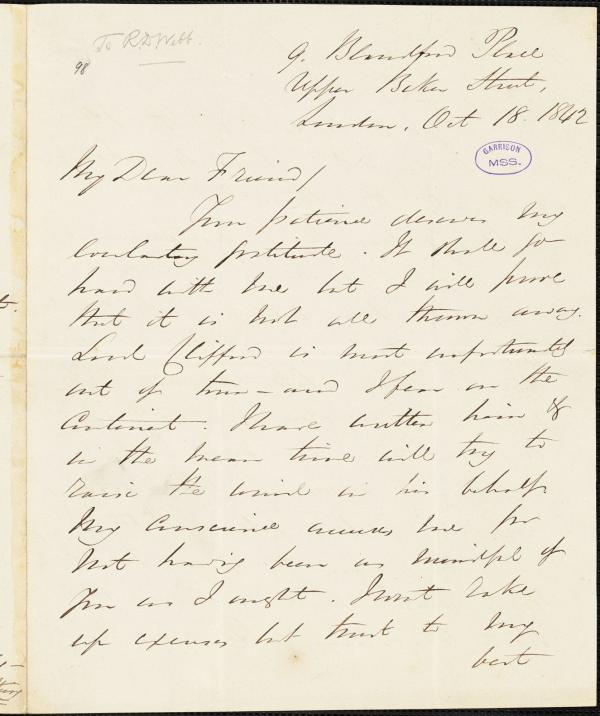 To R D Webb.
98
9. Blandford Place
Upper Baker Street,
London, Oct 18. 1842
GARRISON
MSS.
My Dear Friend/
Your patience deserves my
everlasting gratitude. It shall go
hard with me but I will prove
that it is not all thrown away.
Lord Clifford is most unfortunately
out of town - and I fear on the
Continent. I have written him &
in the mean time will try to
raise the wind in his behalf.
My conscience accuses me for
not having been as mindful of
you as I ought. I wont rake
up excuses but trust to my
best